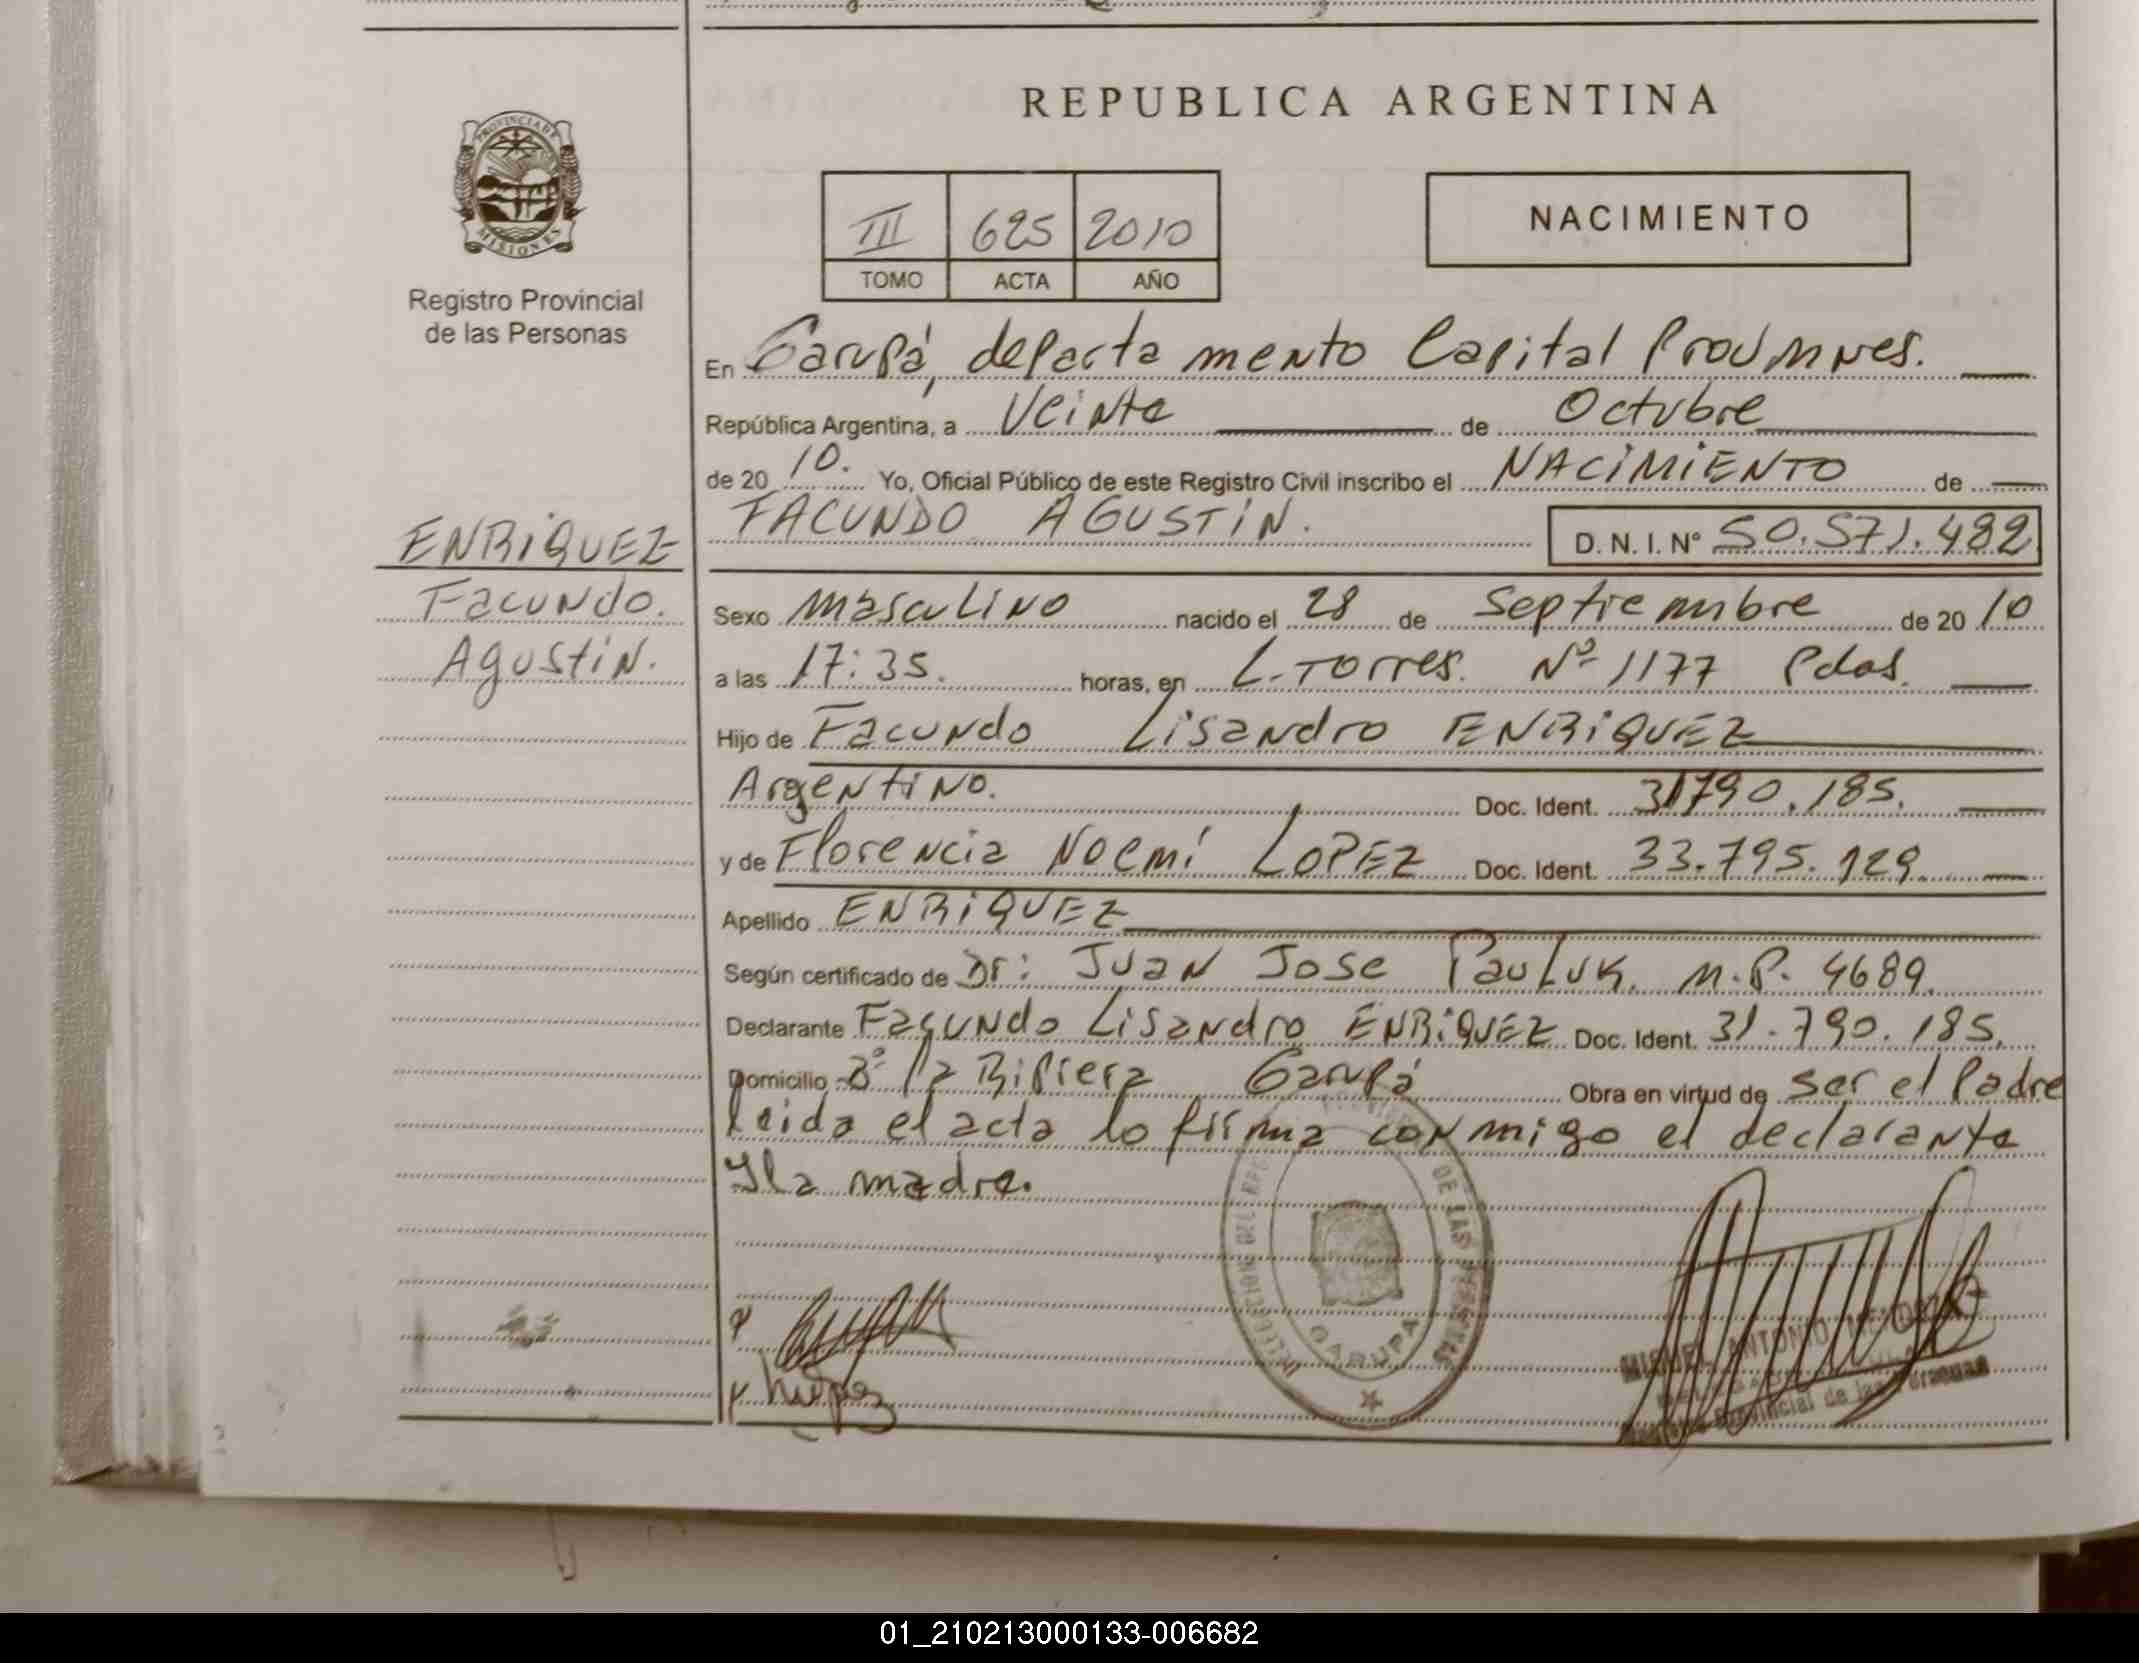 REPUBLICA ARGENTINA
PROVINCIA DE MISIONES
Registro Provincial
de las Personas
III 625 2010
TOMO ACTA AÑO
NACIMIENTO
En Garupá, departamento Capital Prov Mnes.
República Argentina, a Veinte de Octubre
de 20 10. Yo, Oficial Público de este Registro Civil inscribo el NACIMIENTO de
FACUNDO AGUSTIN. D. N. I. N° 50.571.482
ENRIQUEZ
Facundo.
Agustin.
Sexo masculino nacido el 28 de Septiembre de 20 10
a las 17:35. horas, en L. Torres. Nº 1177 Pdas.
Hijo de Facundo Lisandro ENRIQUEZ
Argentino. Doc. Ident. 31790.185.
y de Florencia Noemí LOPEZ Doc. Ident. 33.795.129.
Apellido ENRIQUEZ
Según certificado de Dr: Juan Jose Pauluk. M.P. 4689.
Declarante Facundo Lisandro ENRIQUEZ Doc. Ident. 31.790.185.
Domicilio Bº la Garupá Obra en virtud de ser el Padre
leida el acta lo firma conmigo el declarante
y la madre.
DE LAS
GARUPA
MIGUEL ANTONIO
Provincial de las Personas
López
01_210213000133-006682